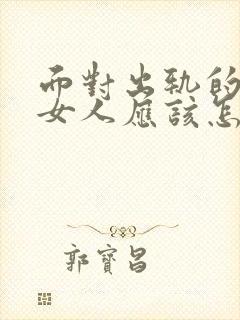 而對出軌的
女人應該怎
郭寶昌